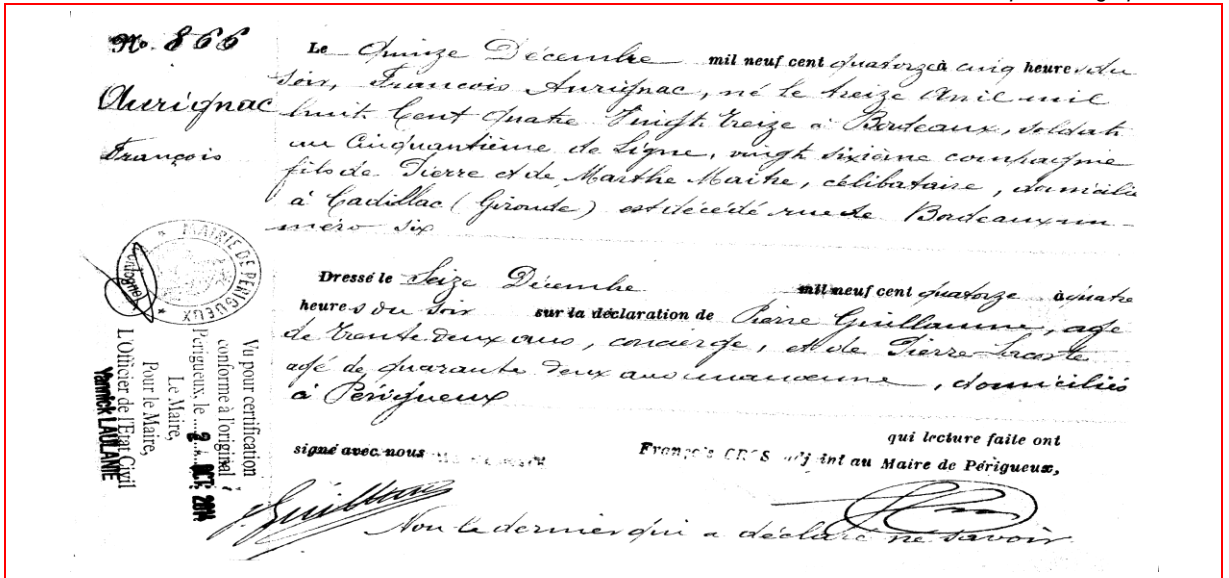 No. 866
Aurignac
François
Le Quinze Décembre mil neuf cent quatorze à cinq heures du
soir, François Aurignac, né le treize Avril mil
huit Cent Quatre Vingt treize à Bordeaux, soldat
au Cinquantième de Ligne, vingt sixième compagnie
fils de Pierre et de Marthe Maitre, célibataire, domicilié
à Cadillac (Gironde) est décédé rue de Bordeaux nu-
méro six
Dressé le Seize Décembre mil neuf cent quatorze à quatre
heures du soir sur la déclaration de Pierre Guillaume, agé
de trente deux ans, concierge, et de Pierre Lacoste
agé de quarante deux ans manoeuvre, domiciliés
à Périgueux
qui lecture faite ont
signé avec nous François CROS adjoint au Maire de Périgueux,
Guillaume
Non le dernier qui a déclaré ne savoir
MAIRIE DE PÉRIGUEUX
Dordogne
Vu pour certification
conforme à l'original
Périgueux, le 2 OCT. 2014
Le Maire,
Pour le Maire,
L'Officier de l'Etat Civil
Yannick LAULANIE